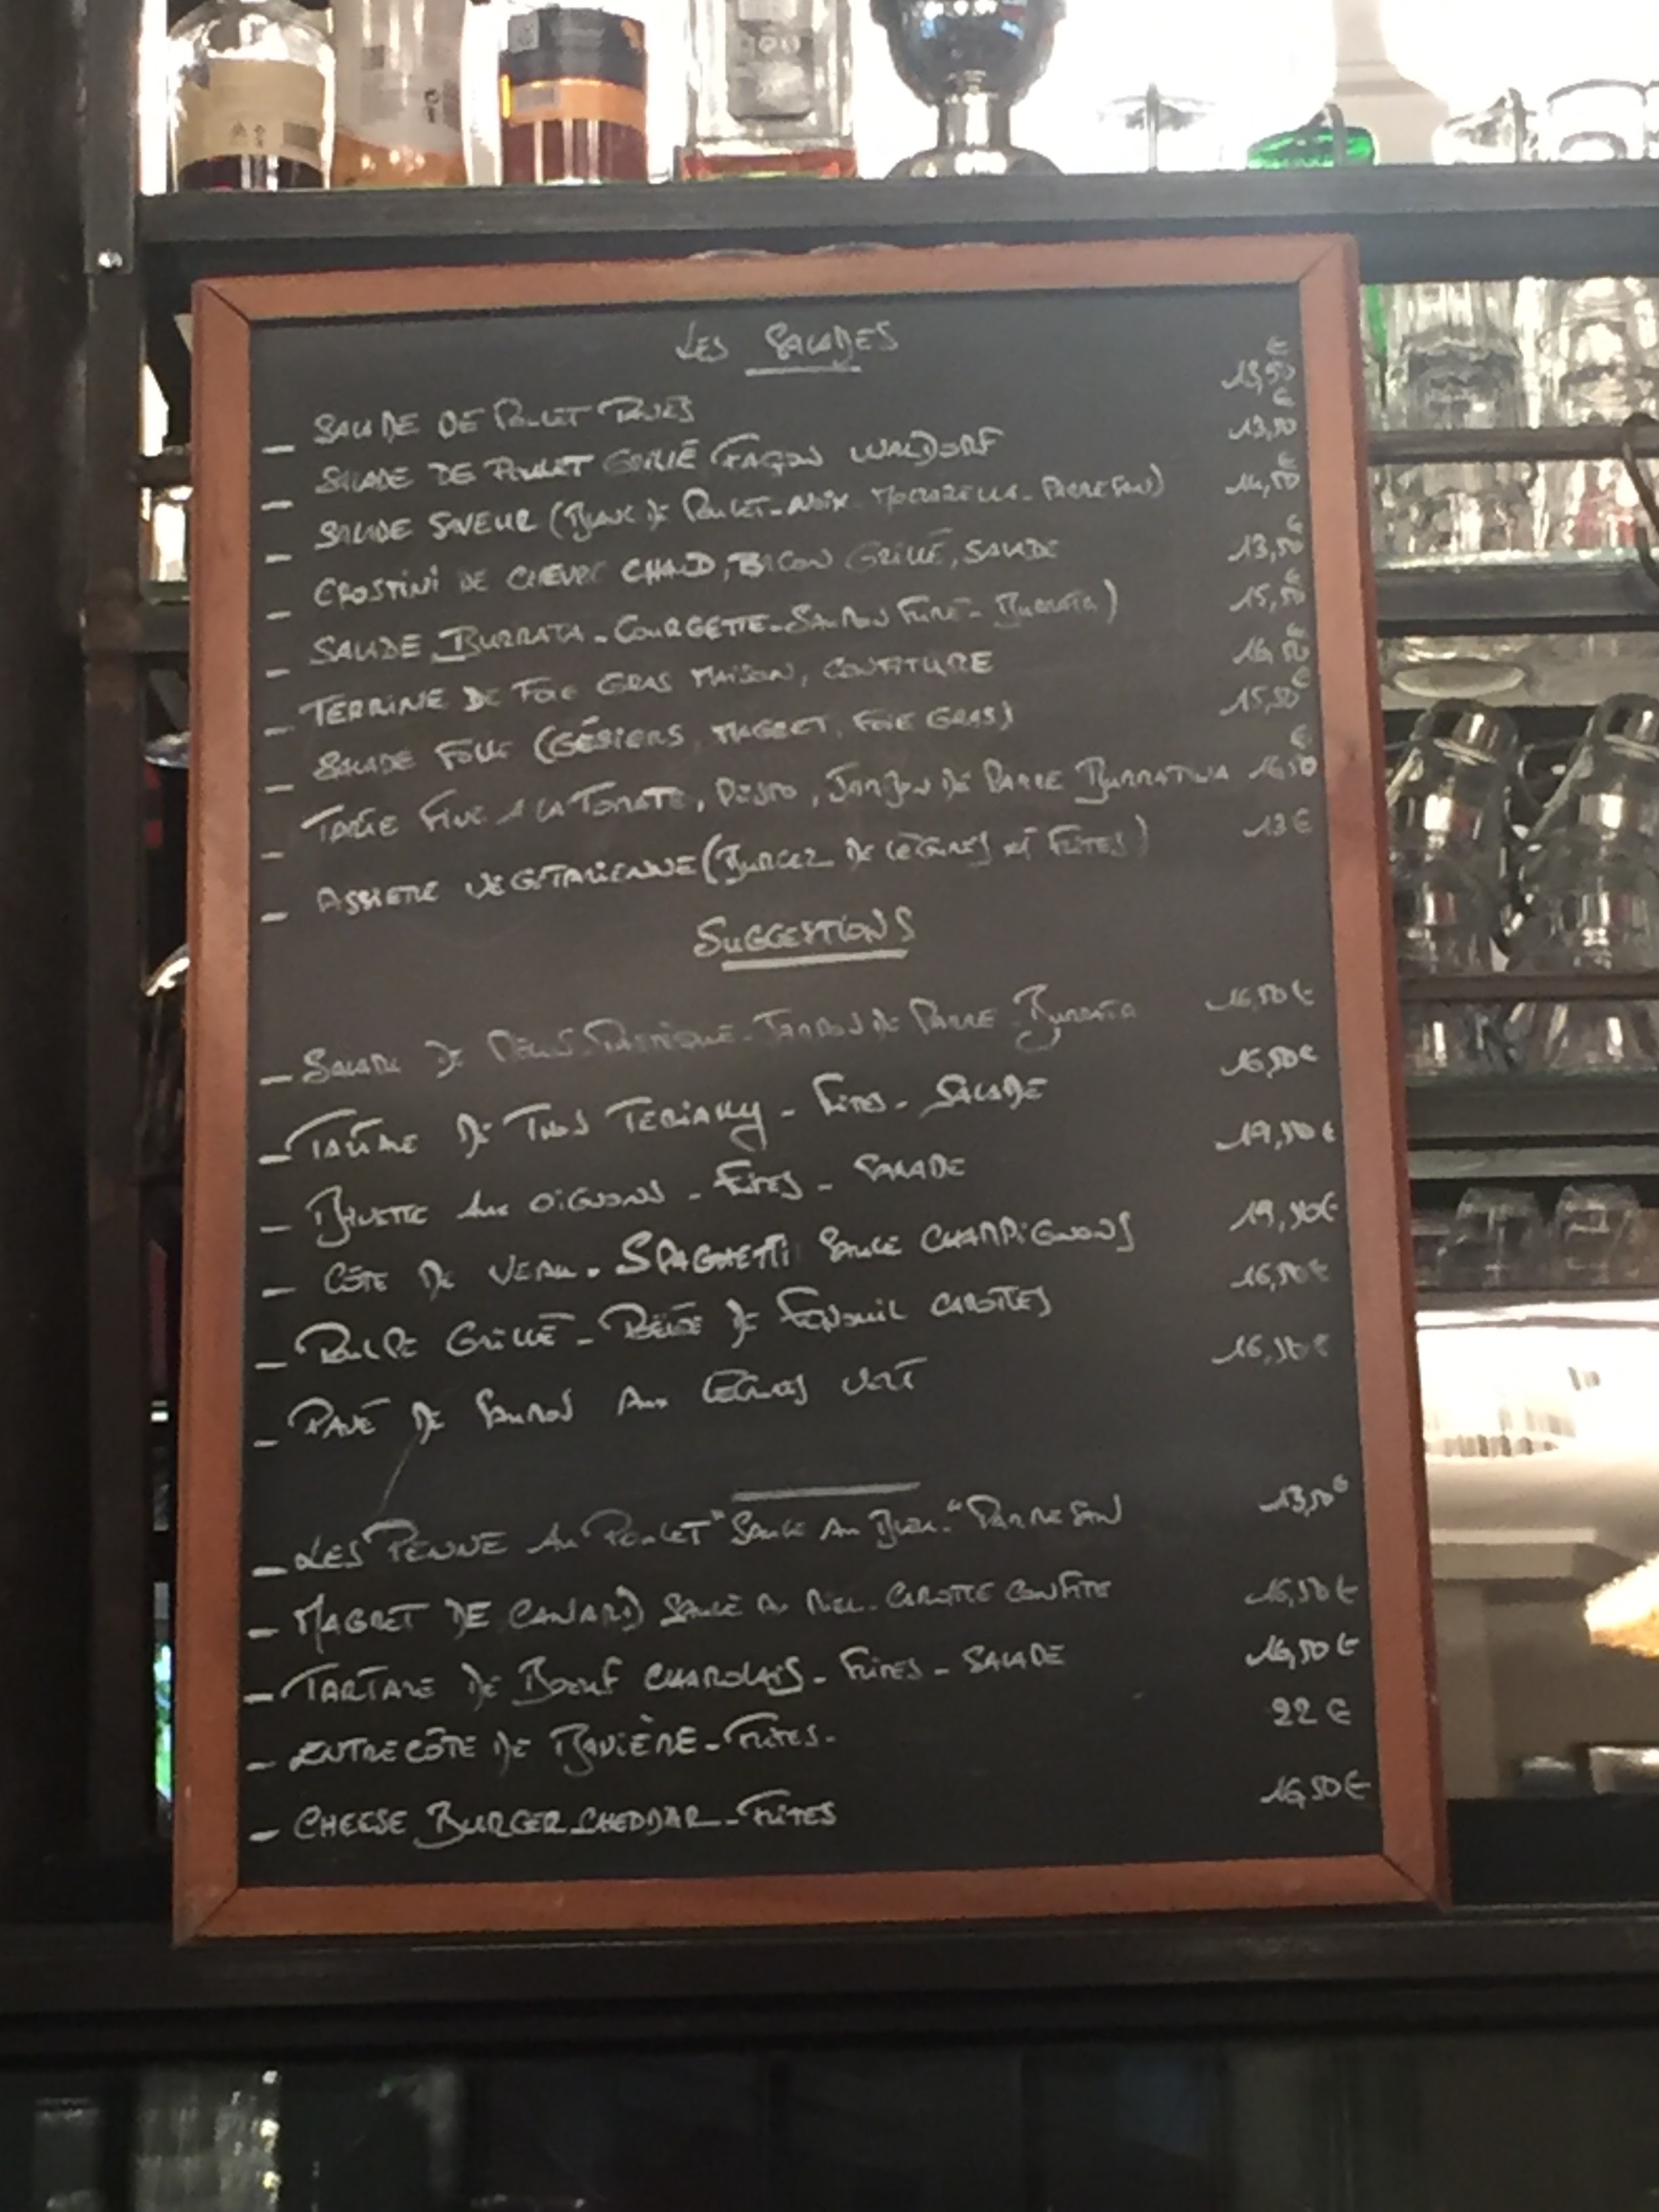 LES SALADES
- SALADE DE POULET PANÉS 13,50 €
- SALADE DE POULET GRILLÉ FAÇON WALDORF 13,50 €
- SALADE SAVEUR (BLANC DE POULET - NOIX - MOZZARELLA - PARMESAN) 14,50 €
- CROSTINI DE CHEVRE CHAUD, BACON GRILLÉ, SALADE 13,50 €
- SALADE BURRATA - COURGETTE - SAUMON FUMÉ - BURRATA) 15,50 €
- TERRINE DE FOIE GRAS MAISON, CONFITURE 16,50 €
- SALADE FOLLE (GÉSIERS, MAGRET, FOIE GRAS) 15,50 €
- TARTE FINE A LA TOMATE, PESTO, JAMBON DE PARME BURRATINA 16,50 €
- ASSIETTE VÉGÉTARIENNE (BURGER DE LÉGUMES ET FRITES) 13 €
SUGGESTIONS
- SALADE DE MELON - PASTÈQUE - JAMBON DE PARME - BURRATA 16,50 €
- TARTARE DE THON TERIAKY - FRITES - SALADE 16,50 €
- BAVETTE AUX OIGNONS - FRITES - SALADE 19,50 €
- CÔTE DE VEAU - SPAGHETTI SAUCE CHAMPIGNONS 19,50 €
- POULPE GRILLÉ - DE FENOUIL CAROTTES 16,50 €
- PAVÉ DE SAUMON AUX LÉGUMES VERT 16,50 €
- LES PENNE AU POULET "SAUCE AU BLEU" PARMESAN 13,50 €
- MAGRET DE CANARD SAUCE AU MIEL - CAROTTE CONFITE 16,50 €
- TARTARE DE BOEUF CHAROLAIS - FRITES - SALADE 16,50 €
- ENTRECÔTE DE BAVIÈRE - FRITES - 22 €
- CHEESE BURGER - CHEDDAR - FRITES 16,50 €